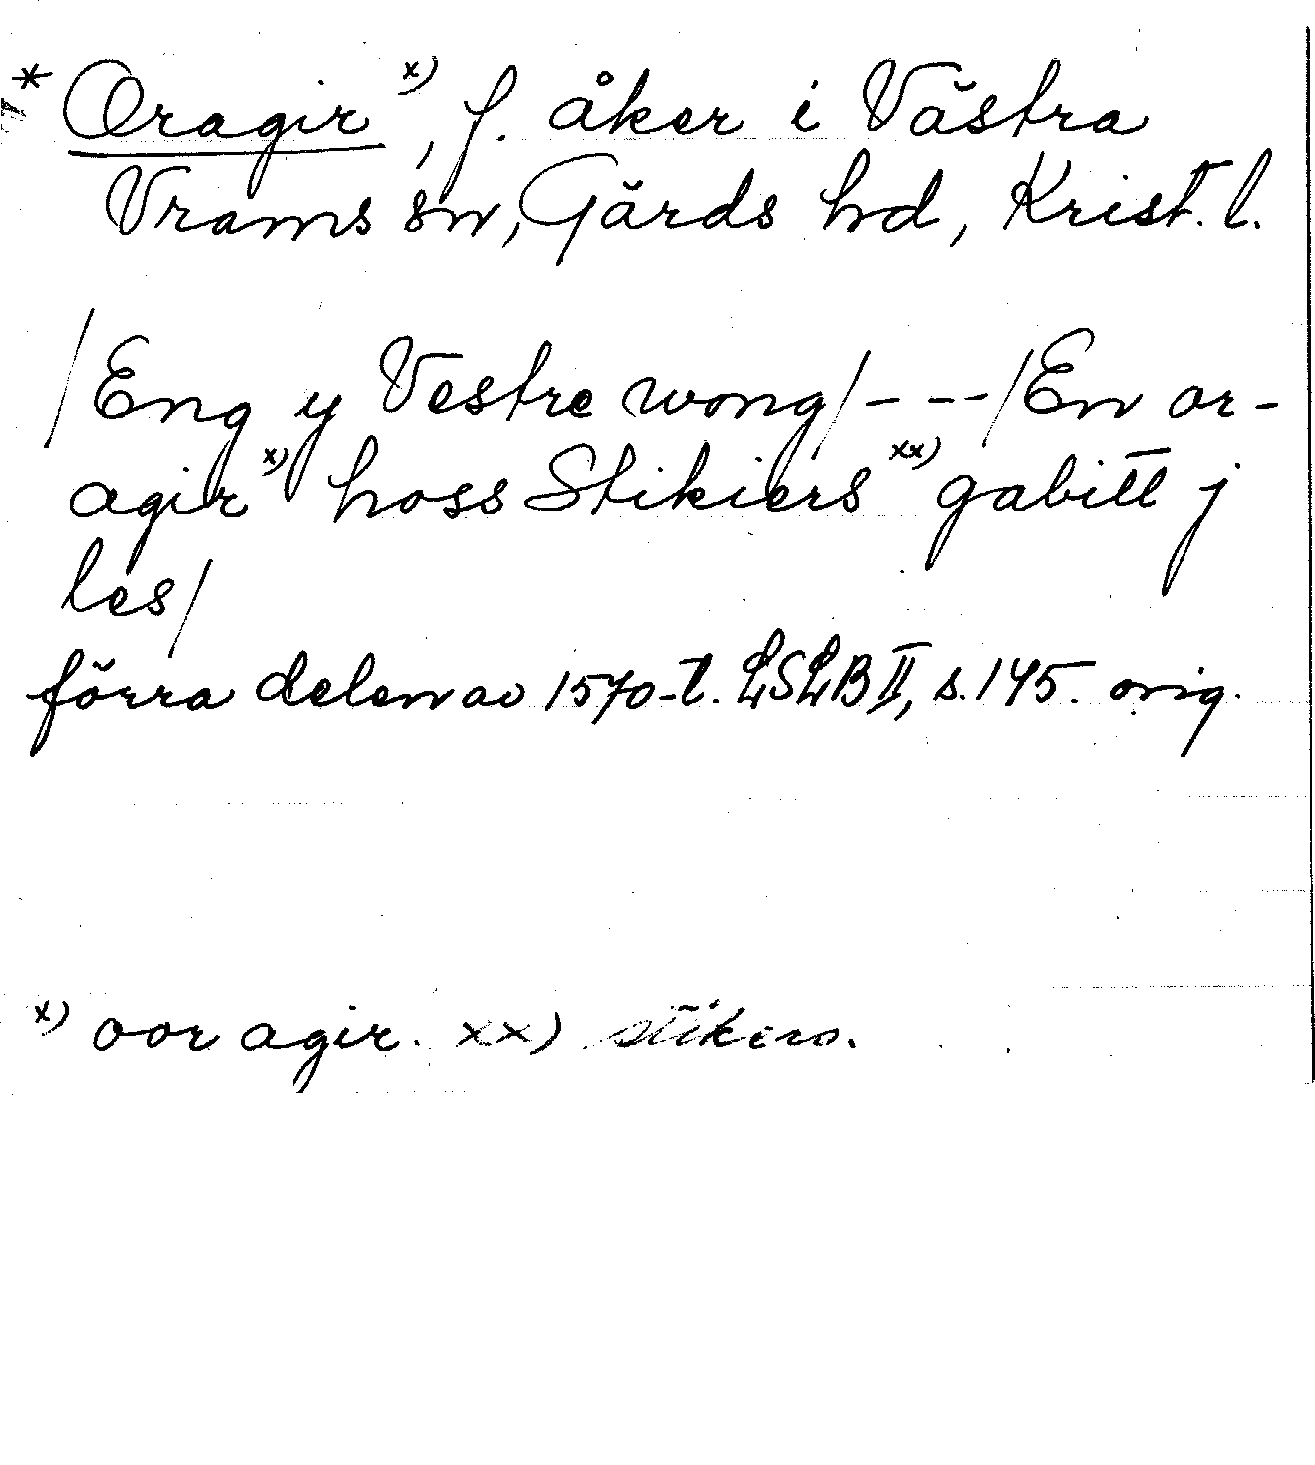 * Oragir x), f. åker i Västra
Vrams sn, Gärds hd, Krist. l.
/Eng y Vestre wong/---/En or-
agir x) hoss Stikiers xx) gabitt j
les/
förra delen av 1570-t. LSLB II, s. 145. orig.
x) oor agir. xx) stikers.